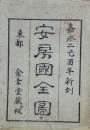 嘉永二己酉年新刻
安房國全圖
東都 金幸堂藏板